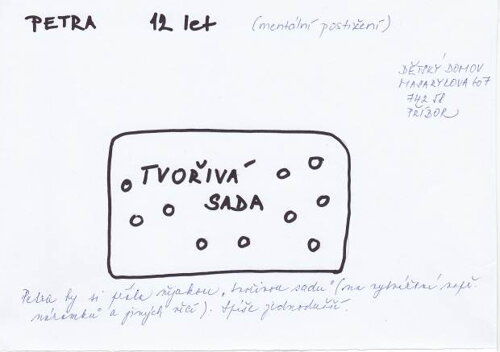 PETRA 12 let (mentální postižení)
DĚTSKÝ DOMOV
MASARYKOVA 607
742 58
PŘÍBOR
TVOŘIVÁ
SADA
Petra by si přála nějakou „tvořivou sadu“ (na vytváření např.
náramků a jiných věcí). Spíše jednodušší.